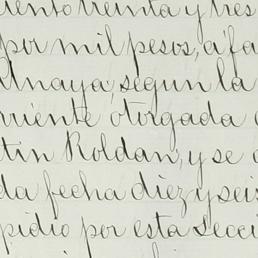 iento treinta y tres
por mil pesos, á fa
Anaya, segun la
rriente otorgada
tin Roldan, y se
da fecha diez y seis
pidio por esta Secci